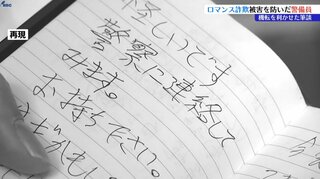 SBC
ロマンス詐欺被害を防いだ警備員
機転を利かせた筆談
再現
怪しいです
警察に連絡して
みます。
お持ちください。